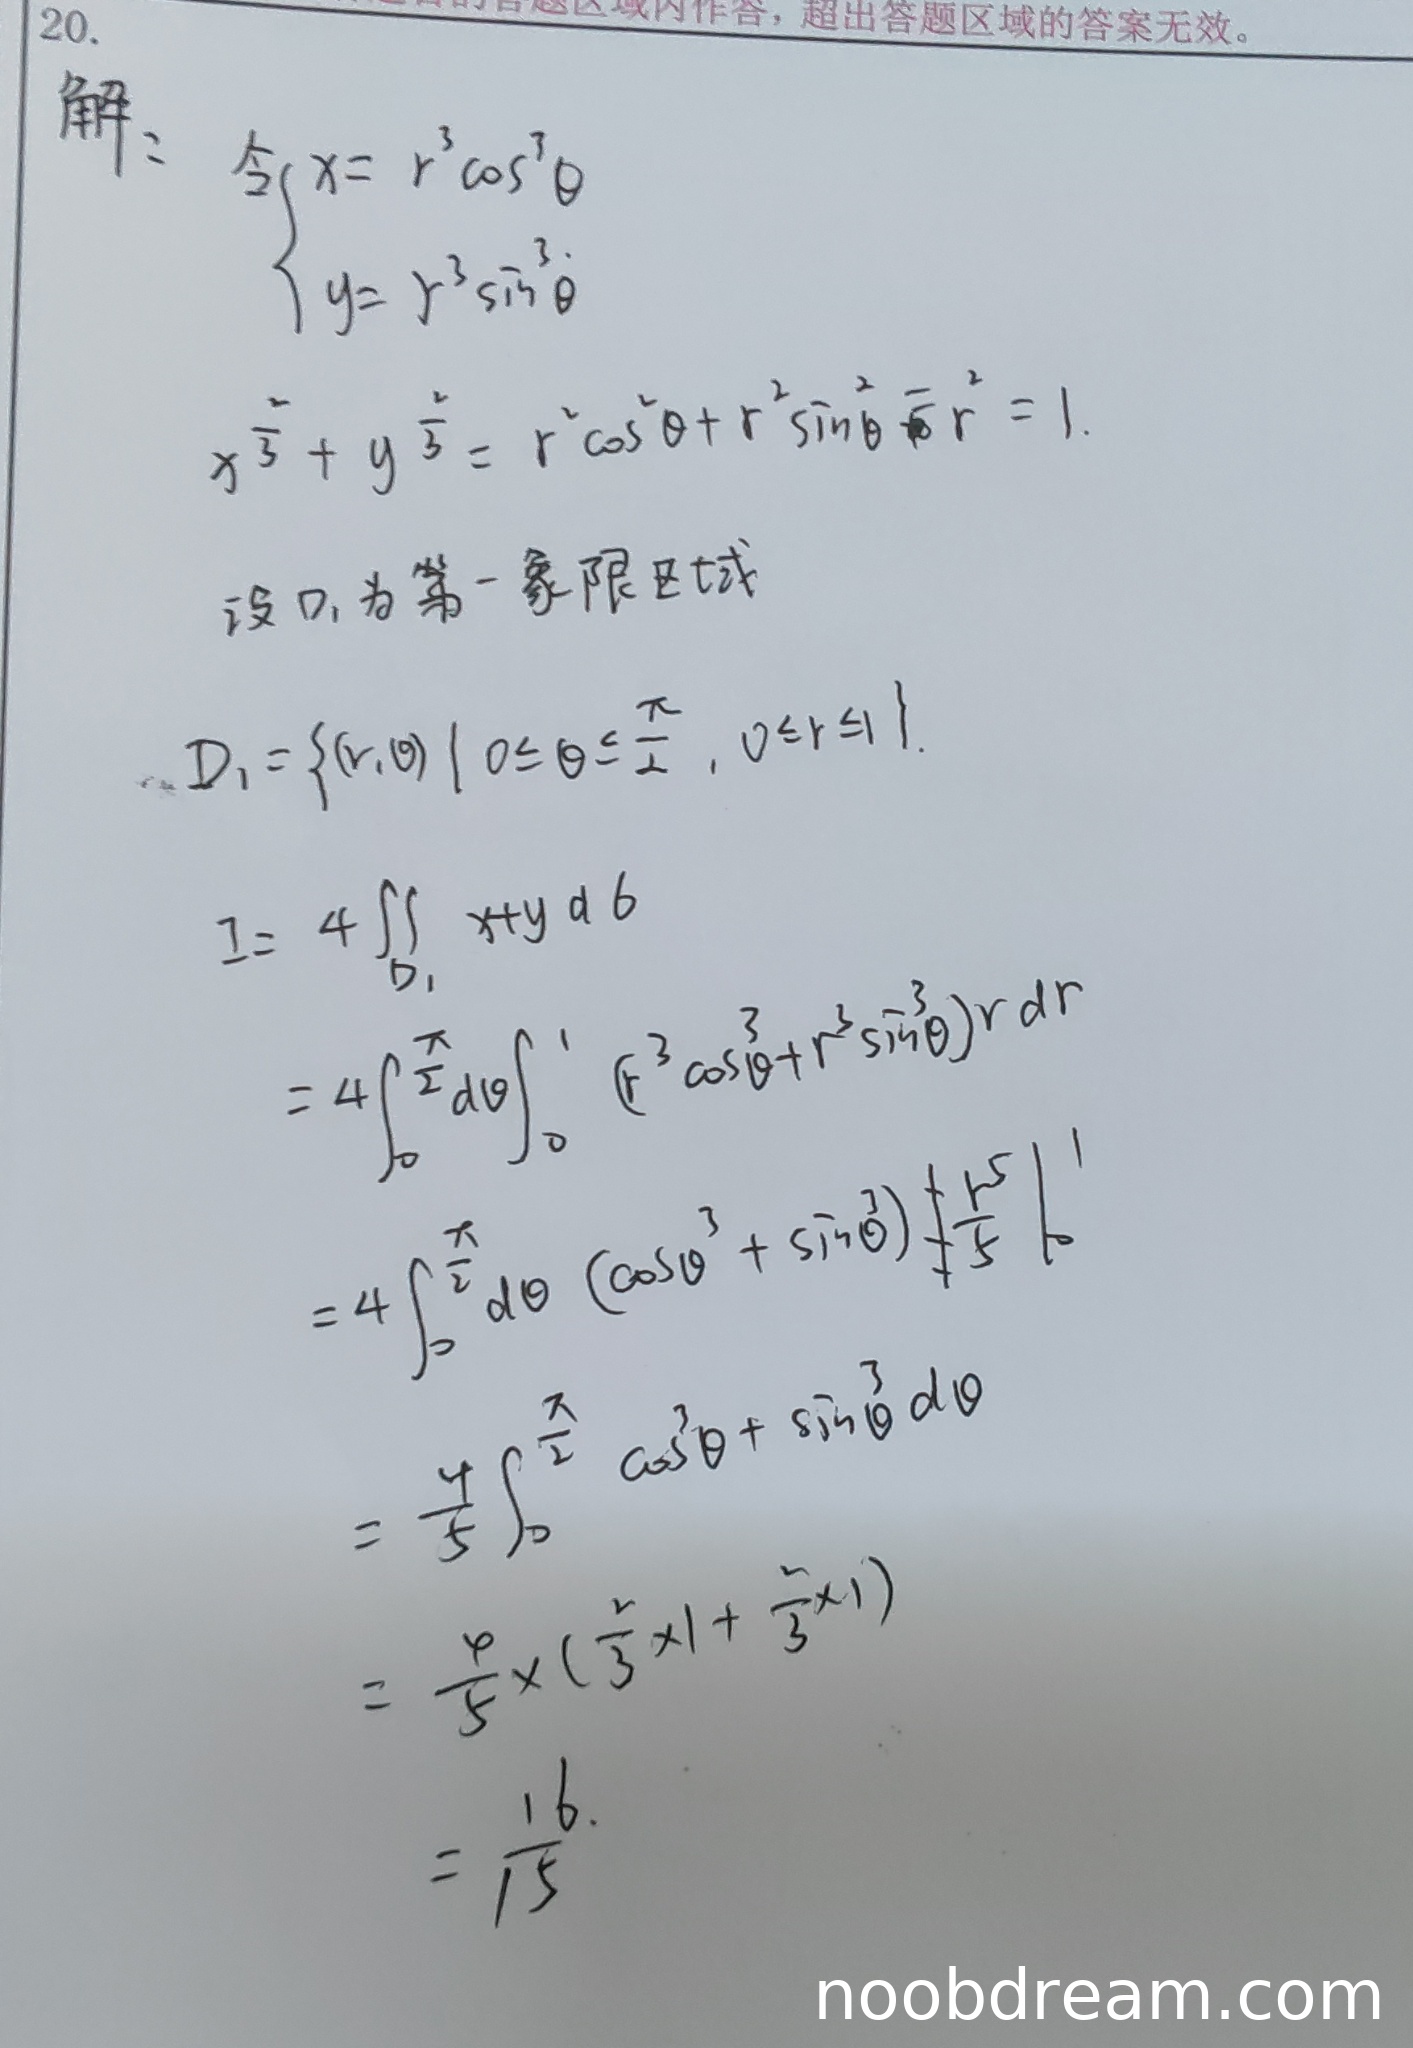 答题区域内作答，超出答题区域的答案无效。
20.
解：令{x = r³cos³θ
y = r³sin³θ
x^{2/3} + y^{2/3} = r²cos²θ + r²sin²θ = r² = 1.
设 D₁ 为第一象限区域
D₁ = {(r,θ) | 0≤θ≤π/2, 0≤r≤1}.
I = 4∬_{D₁} x+y dσ
= 4∫₀^{π/2} dθ ∫₀¹ (r³cos³θ + r³sin³θ) r dr
= 4∫₀^{π/2} dθ (cosθ³ + sinθ³) r⁵/5 |₀¹
= 4/5 ∫₀^{π/2} cos³θ + sin³θ dθ
= 4/5 × (2/3 ×1 + 2/3 ×1)
= 16/15.
noobdream.com